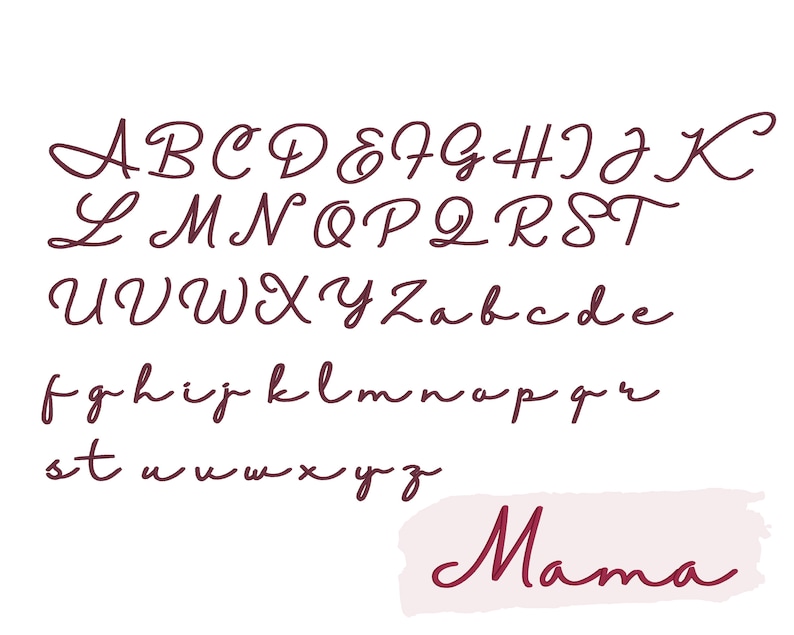 ABCDEFGHIJK
LMNOPQRST
UVWXYZabcde
fghijklmnopqr
stuvwxyz
Mama